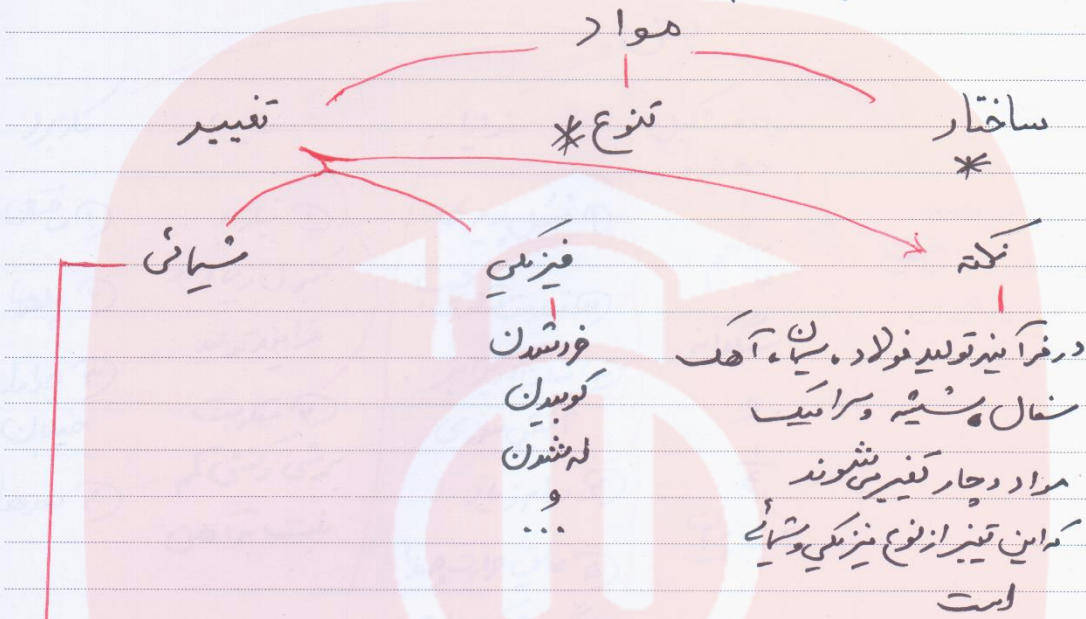 مواد
ساختار تنوع * تغییر
*
نکته فیزیکی شیمیائی
در فرآیند تولید فولاد، سیمان، آهک
سفال، شیشه و سرامیک
مواد دچار تغییر می‌شوند
که این تغییر از نوع فیزیکی و شیمیائی
است
خرد شدن
کوبیدن
له شدن
و
...